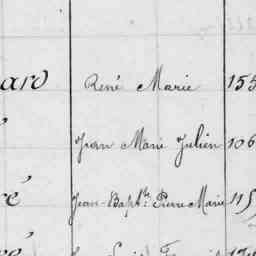 aro René Marie 155
Jean Marie Julien 106
ré Jean-Bapte Pierre Marie 115